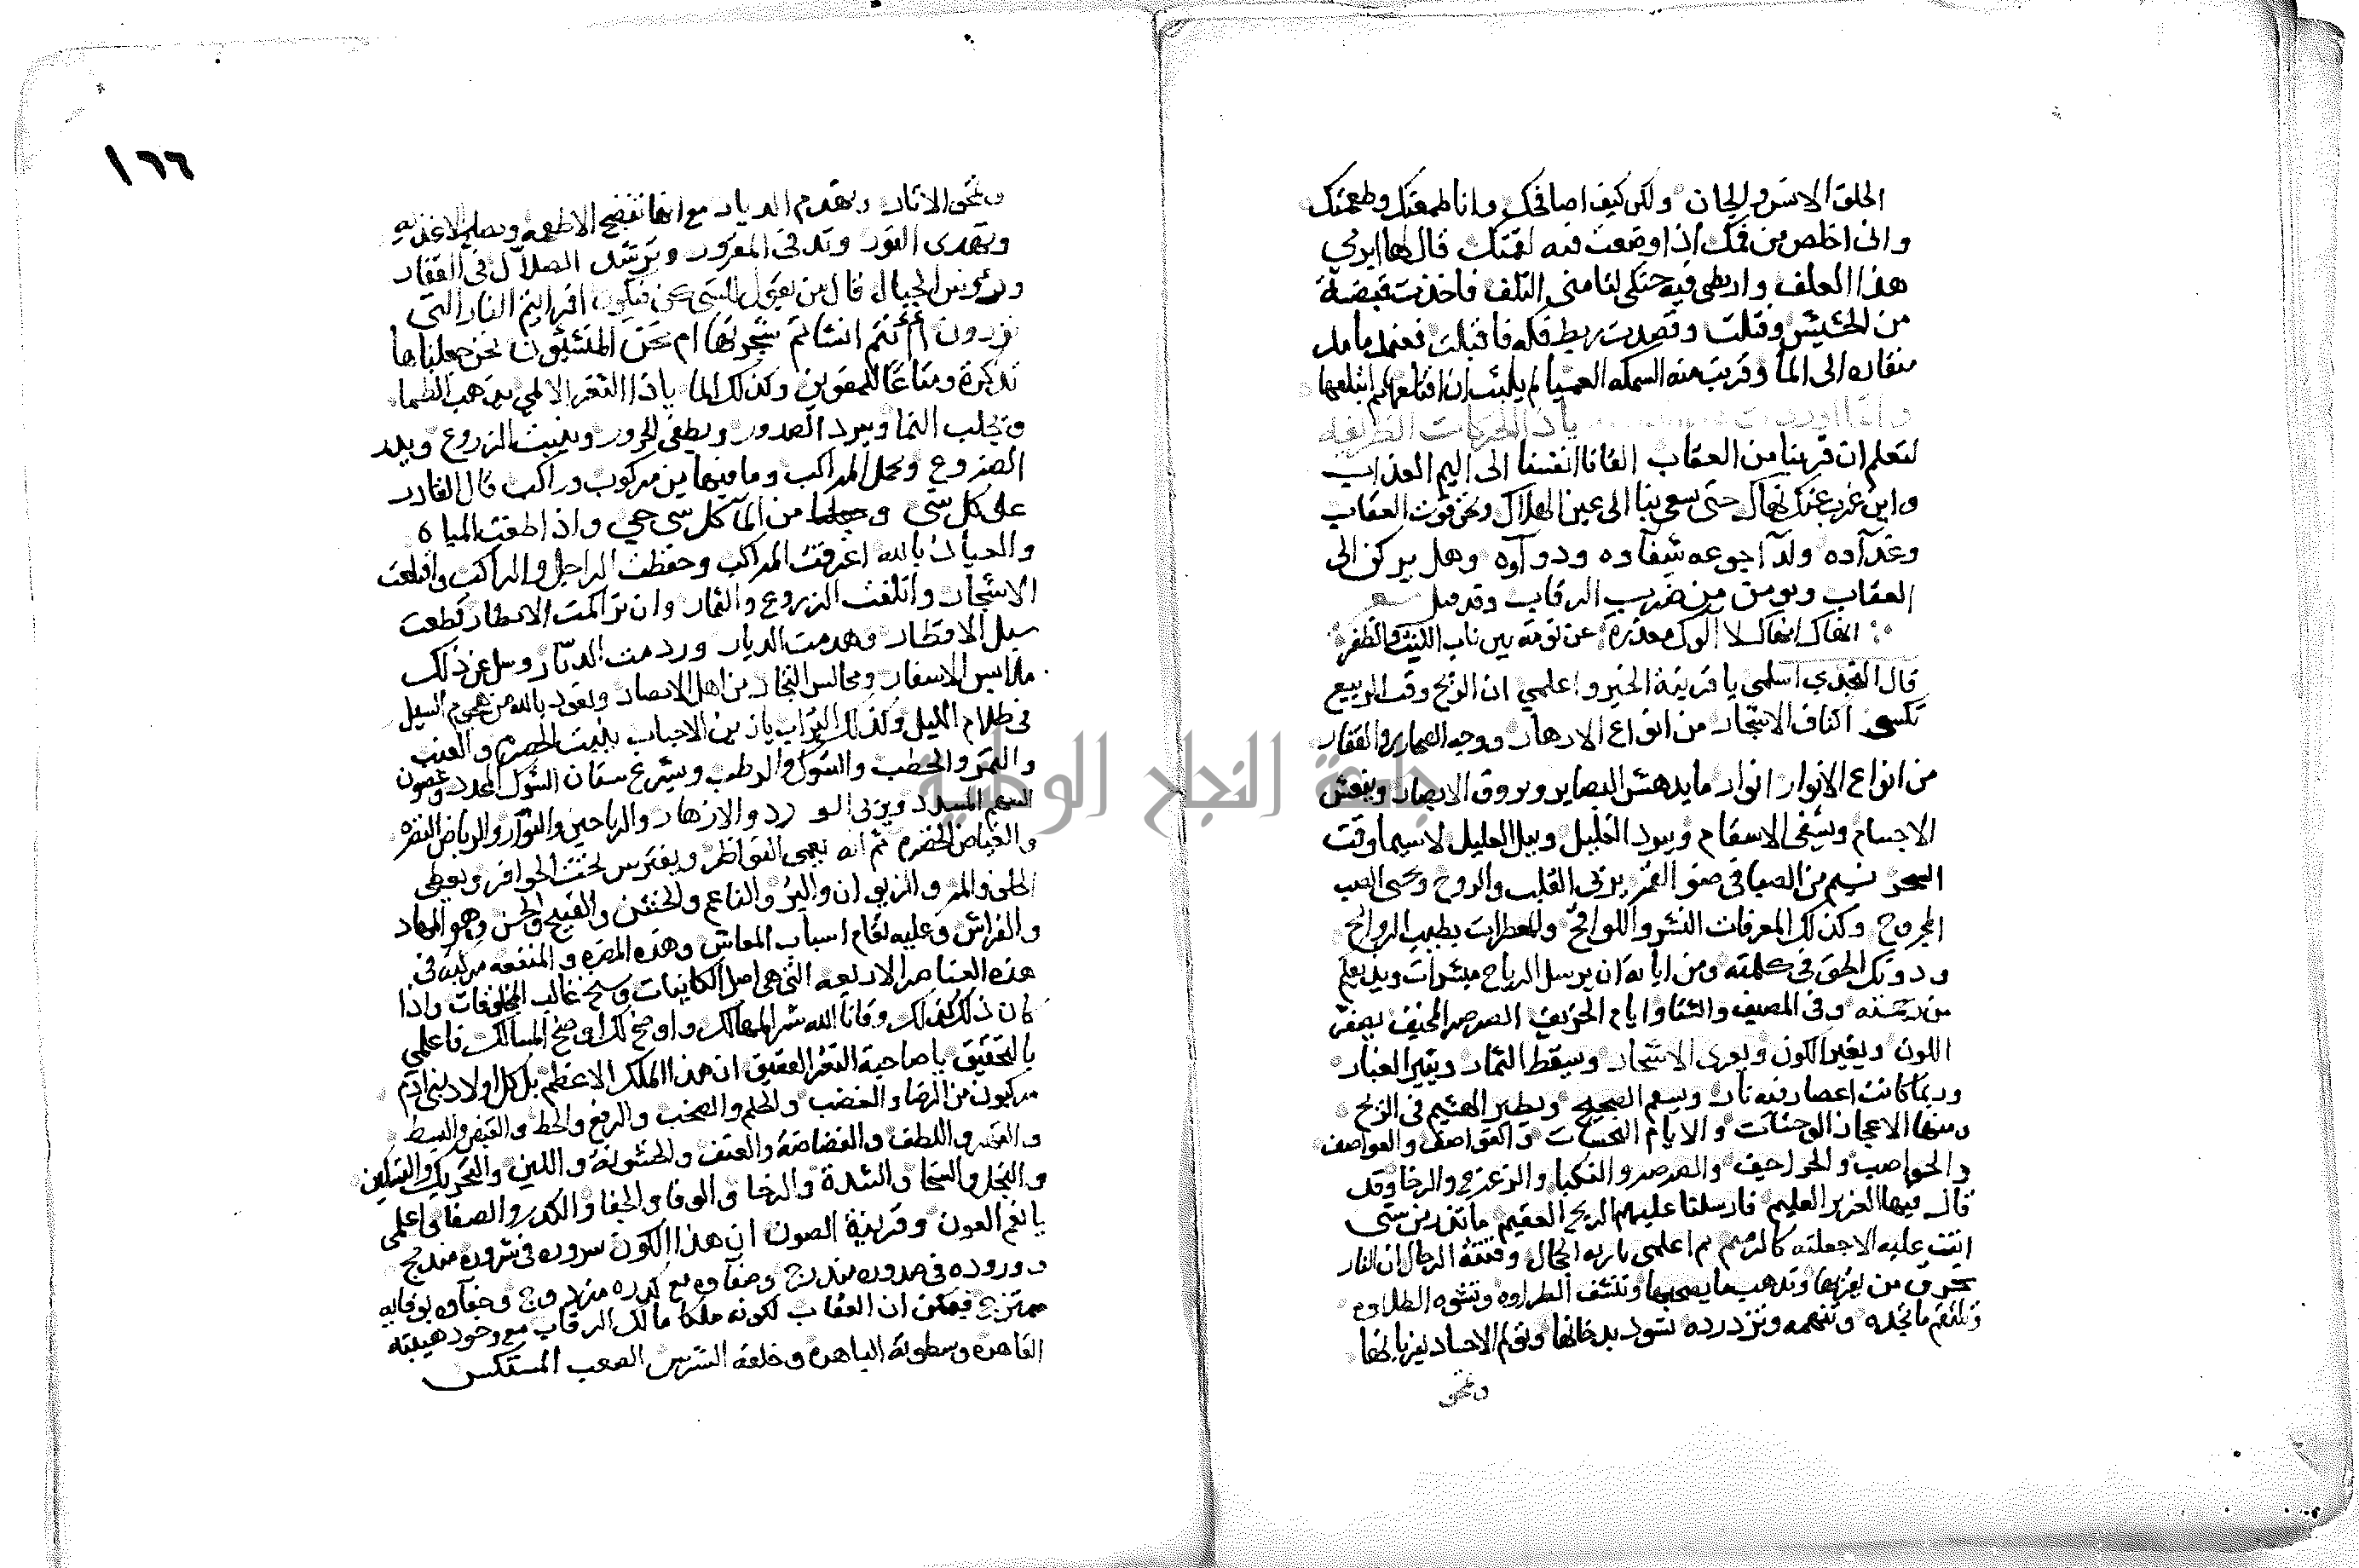 الخلق الانس والجان ولكن كيف اصافحك وانا طمعتك وطعمتك
وانى اخلص من فمك اذا وضعت فيه لقمتك قال لها ابرمي
هذا العلف واربطي فيه حنكي لتامني التلف فاخذت قبضة
من الحشيش وفتلت وقصدت ربط فكه فاقبلت فعندما مد
منقاره الى الما وقربت منه السمكه لم يلبث ان اقتلعها ثم ابتلعها
وانما اوردت ياذا الحركات الظريفه
لتعلم ان قربنا من العقاب القانا انفسنا الى اليم العذاب
واين عزب عنك نهاك حتى سعي بنا الى عين الهلاك ونحن قوت العقاب
وغداده ولدا جوعه شفاوه ودواوه وهل يركن الى
العقاب ويومن من ضرب الرقاب وقد قيل
انهاك انهاك لا الوك معذرة عن نومة بين ناب الليث والظفر
قال النجدي اسلمى يا قرينة الخير واعلمي ان الريح وقت الربيع
تكسى اكناف الاشجار من انواع الازهار ووجه الصحارى والقفار
من انواع الانوار انوار ما يدهش البصاير ويروق الابصار وينعش
الاجسام ويشفى الاسقام ويبرد الغليل ويبل العليل لاسيما وقت
السحر نسيم من الصبا فى ضو القمر يربى القلب والروح ويحيى الصب
المجروح وكذلك المعرفات النشر واللواقح والمعطرات بطيب الروائح
ودونك الحق فى كلمته ومن اياته ان يرسل الرياح مبشرات وليذيقكم
من رحمته وفى المصيف والشتا وايام الخريف الصرصر المخيف يصفر
اللون ويغير الكون ويعرى الاشجار ويسقط الثمار ويثير الغبار
وربما كانت اعصار فيه نار ويسقم الصحيح ويطير الهشيم فى الريح
ومنها الاعجاز الوحشات والايام النحسات والقواصف والعواصف
والحواصب والحراجيف والصرصر والنكبا والزعزع والرخا وقد
قال فيها العزيز العليم فارسلنا عليهم الريح العقيم ما تذر من شى
اتت عليه الا جعلته كالرميم ثم اعلمى ياربه الحجال وفتنة الرجال ان النار
تحرق من يقربها وتذهب ما يصحبها وتنشف الطراوه وتشوه الطلاوه
وتلتقم ما تجده وتنهمه وتزدرده تسود بدخانها وتولم الاجساد بقربانها
وتمحو
١٦٦
وتمحو الاثار وتهدم الديار مع انها تنضج الاطعمه وتصلح الاغذيه
وتهدى النور وتدفى المقرور وترشد الضلال فى القفار
وروس الجبال قال من يقول للشى كن فيكون افرايتم النار التى
تورون أأنتم انشاتم شجرتها ام نحن المنشئون نحن جعلناها
تذكرة ومتاعا للمقوين وكذلك الما ياذا الثغر الالمي يذهب الظما
ويجلب النما ويبرد الصدور ويطفى الحرور وينبت الزروع ويدر
الضروع ويحمل المراكب وما فيها من مركوب وراكب قال القادر
على كل شى وجعلنا من الما كل شى حي واذا طغت المياه
والعياذ بالله اغرقت المراكب وخطفت الراجل والراكب واقتلعت
الاشجار واتلفت الزروع والثمار وان تراكمت الامطار قطعت
سبل الاقطار وهدمت الديار وردمت الابار وسل عن ذلك
ملابس الاسفار ومجالس التجار من اهل الامصار ونعوذ بالله من هجوم السيل
فى ظلام الليل وكذلك التراب يازين الاحباب ينبت الحصرم والعنب
والتمر والحطب والشوك والرطب ويشرع سنان الشوك المحدد وغصون
السهم المسدد ويربى الورد والازهار والرياحين والنوار والرياض النضره
والغياض الخضره ثم انه يعمى النواظر ويفترش تحت الحوافر ويعطى
الحلو والمر والزيوان والبر والناعم والخشن والقبيح والحسن وهو المهاد
والفراش وعليه تقام اسباب المعاش وهذه المضره والمنفعه مركبة فى
هذه العناصر الاربعه التى هى اصل الكاينات وسنخ غالب المخلوقات واذا
كان ذلك كذلك وقانا الله شر المهالك واوضح لك اوضح المسالك فاعلمي
بالتحقيق يا صاحبة الثغر العقيق ان هذا الملك الاعظم بل كل اولاد بنى ادم
مركبون من الرضا والغضب والحلم والصخب والرفع والحط والقبض والبسط
والقهر واللطف والفضاضة والعنف والخشونة واللين والتحريك والتسكين
والبخل والسخا والشدة والرخا والوفا والجفا والكدر والصفا فاعلمى
يا نعم العون وقرينة الصون ان هذا الكون سروره فى شروره مندمج
ووروده فى صدوره مندرج وصفاوه مع كدره مزدوج وجفاوه بوفايه
ممتزج فيمكن ان العقاب لكونه ملكا مالك الرقاب مع وجود هيبته
القاهره وسطوته الباهره وخلقه الشرس الصعب المستكس